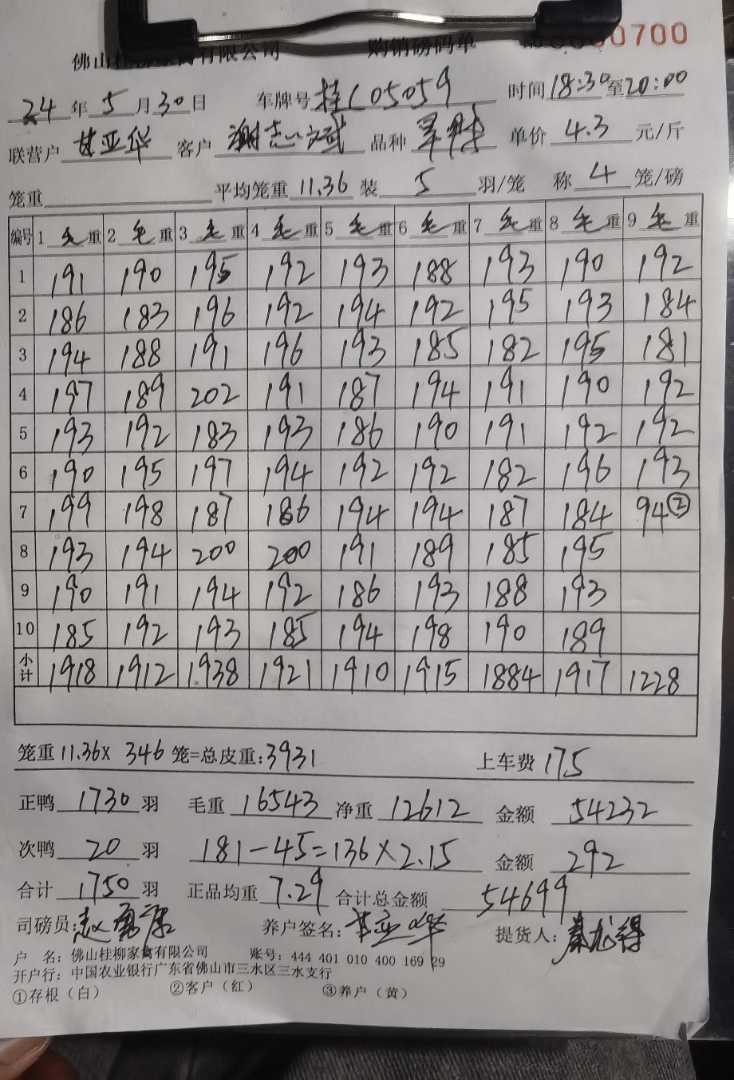 佛山桂柳家禽有限公司 购销磅码单 0000700
24年5月30日 车牌号 桂L05059 时间18:30至20:00
联营户 甘亚华 客户 谢志斌 品种 单价 4.3 元/斤
笼重 平均笼重 11.36 装 5 羽/笼 称 4 笼/磅
编号 1 毛 重 2 毛 重 3 毛 重 4 毛 重 5 毛 重 6 毛 重 7 毛 重 8 毛 重 9 毛 重
1 191 190 195 192 193 188 193 190 192
2 186 183 196 192 194 192 195 193 184
3 194 188 191 196 193 185 182 195 181
4 197 189 202 191 187 194 191 190 192
5 193 192 183 193 186 190 191 192 192
6 190 195 197 194 192 192 182 196 193
7 199 198 187 186 194 194 187 184 94②
8 193 194 200 200 191 189 185 195
9 190 191 194 192 186 193 188 193
10 185 192 193 185 194 198 190 189
小计 1918 1912 1938 1921 1910 1915 1884 1917 1228
笼重 11.36× 346 笼=总皮重:3931 上车费 175
正鸭 1730 羽 毛重 16543 净重 12612 金额 54232
次鸭 20 羽 181-45=136×2.15 金额 292
合计 1750 羽 正品均重 7.29 合计总金额 54699
司磅员: 养户签名: 甘亚华 提货人:
户 名: 佛山桂柳家禽有限公司 账号: 444 401 010 400 169 29
开户行: 中国农业银行广东省佛山市三水区三水支行
①存根（白） ②客户（红） ③养户（黄）